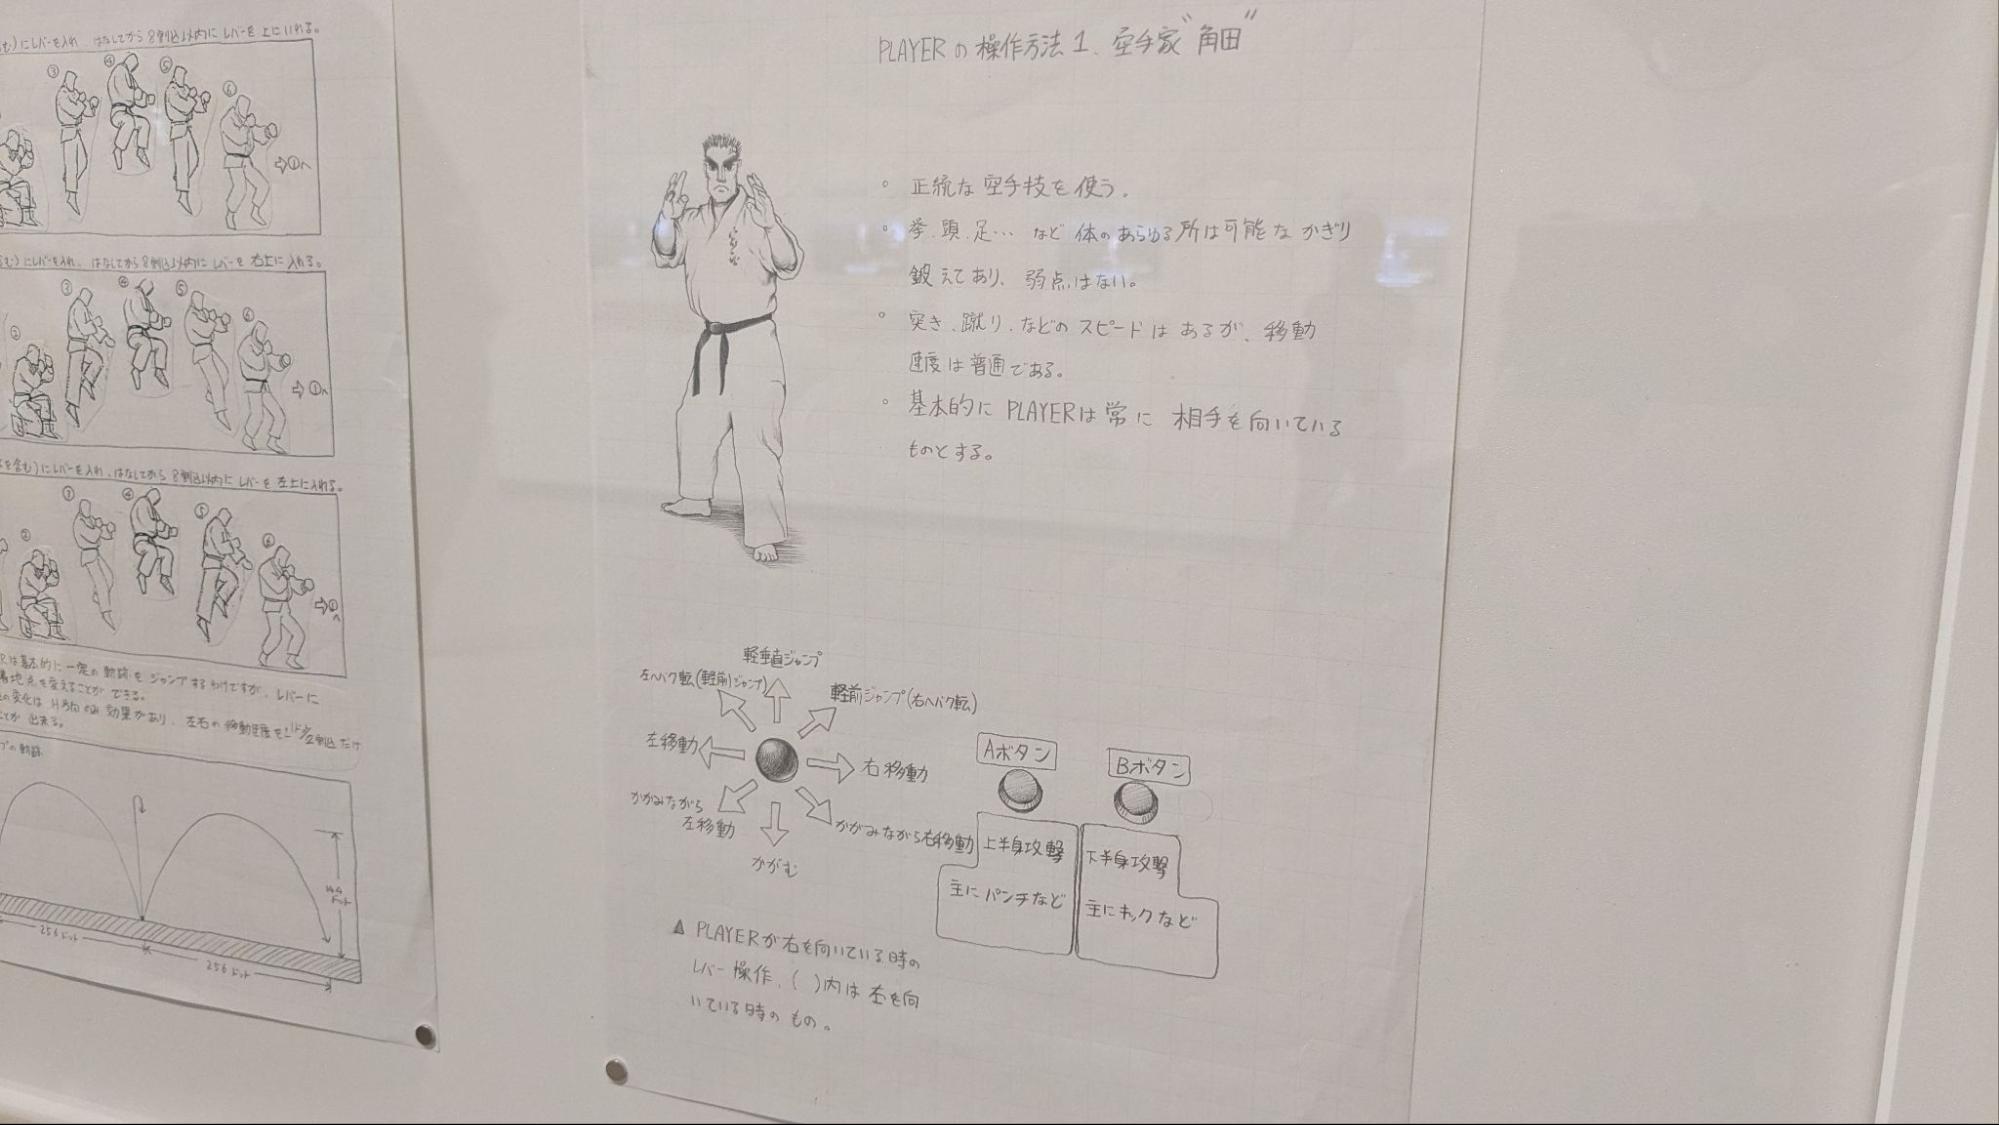 む)にレバーを入れ、はなしてから8割込以内にレバーを上にいれる。
③
④
⑤
⑥
⇨①へ
む)にレバーを入れ、はなしてから8割込以内にレバーを右上に入れる。
②
③
④
⑤
⑥
⇨①へ
を含む)にレバーを入れ、はなしてから8割込以内にレバーを左上に入れる。
②
③
④
⑤
⑥
⇨①へ
Rは基本的に一定の動跡をジャンプするわけですが、レバーに
着地点を変えることができる。
の変化はH方向のみ効果があり、左右の移動速度を
ことが出来る。
プの動跡
144ドット
256ドット
256ドット
PLAYERの操作方法1. 空手家"角田"
。正統な空手技を使う。
。拳、頭、足…など体のあらゆる所は可能なかぎり
鍛えてあり、弱点はない。
。突き、蹴り、などのスピードはあるが、移動
速度は普通である。
。基本的にPLAYERは常に相手を向いている
ものとする。
軽垂直ジャンプ
左へバク転(軽前ジャンプ)
軽前ジャンプ(右へバク転)
左移動
右移動
かがみながら
左移動
かがみながら右移動
かがむ
Aボタン
Bボタン
上半身攻撃
主にパンチなど
下半身攻撃
主にキックなど
▲ PLAYERが右を向いている時の
レバー操作、( )内は左を向
いている時のもの。